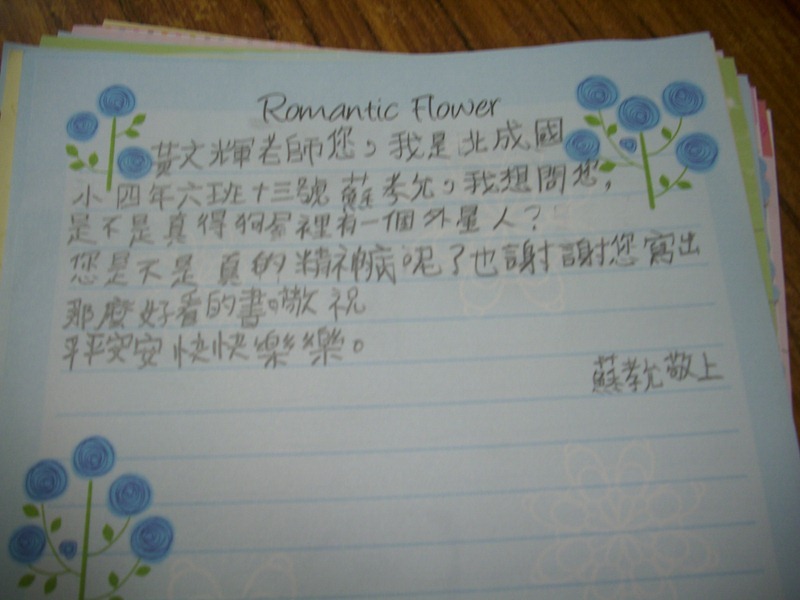 Romantic Flower
黃文輝老師您,我是北成國
小四年六班十三號蘇孝允,我想問您,
是不是真得狗屋裡有一個外星人?
您是不是真的精神病呢了也謝謝您寫出
那麼好看的書。敬祝
平平安安快快樂樂。
蘇孝允敬上